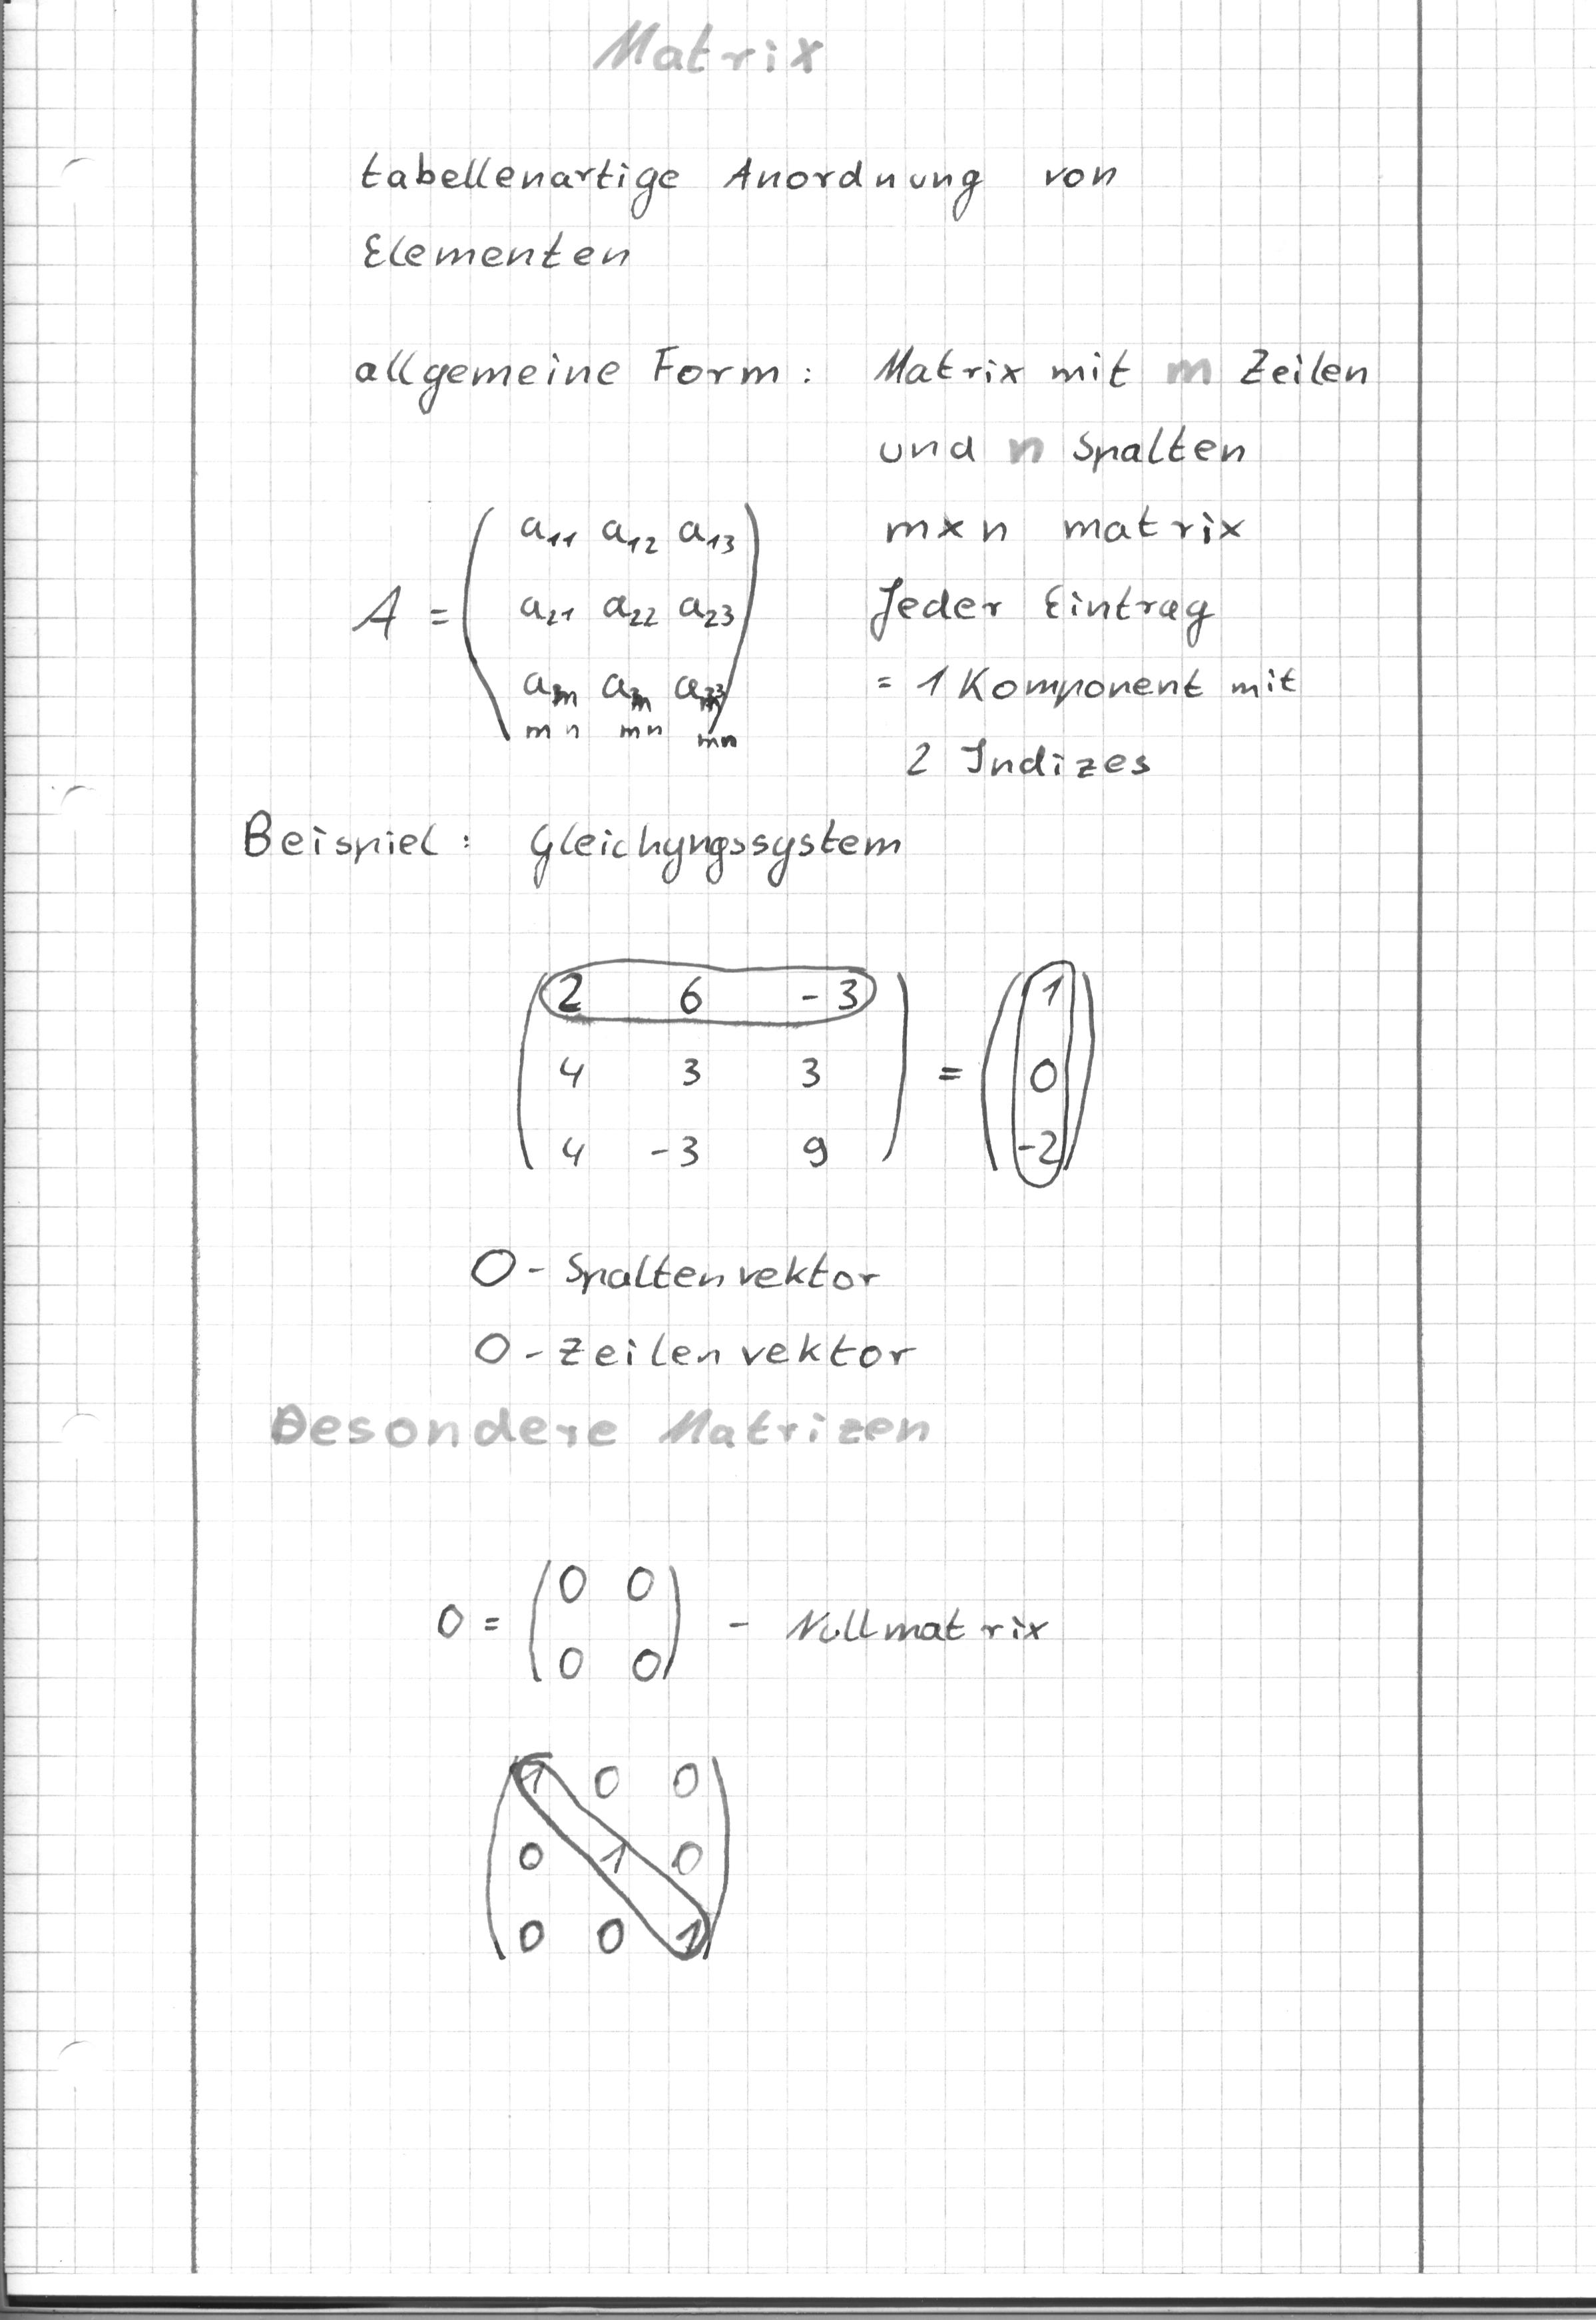 Matrix
tabellenartige Anordnung von
Elementen
allgemeine Form: Matrix mit m Zeilen
und n Spalten
a11 a12 a13 m x n matrix
A = a21 a22 a23 Jeder Eintrag
= 1 Komponent mit
mn mn mn
2 Indizes
Beispiel: Gleichyngssystem
2 6 -3 1
4 3 3 = 0
4 -3 9 -2
O - Spaltenvektor
O - Zeilenvektor
Besondere Matrizen
0 0
0 = - Nullmatrix
0 0
1 0 0
0 1 0
0 0 1